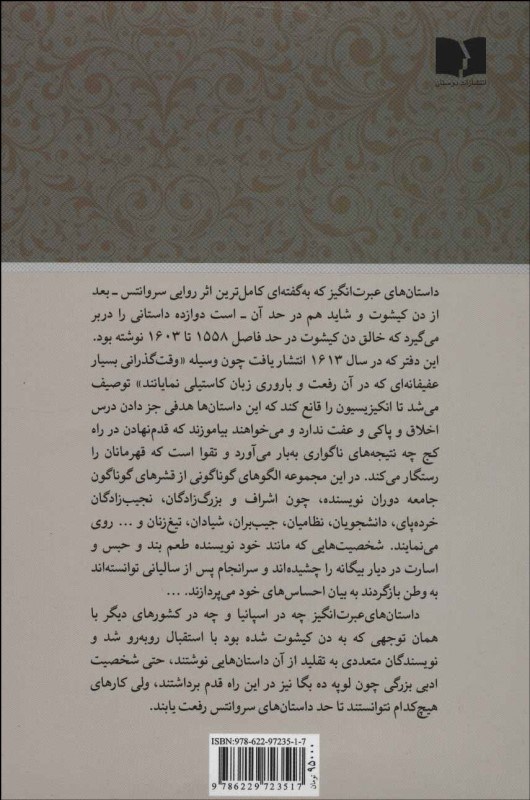 انتشارات دوستان
داستان‌های عبرت‌انگیز که به‌گفته‌ای کامل‌ترین اثر روایی سروانتس ـ بعد
از دن کیشوت و شاید هم در حد آن ـ است دوازده داستانی را دربر
می‌گیرد که خالق دن کیشوت در حد فاصل ۱۵۵۸ تا ۱۶۰۳ نوشته بود.
این دفتر که در سال ۱۶۱۳ انتشار یافت چون وسیله «وقت‌گذرانی بسیار
عفیفانه‌ای که در آن رفعت و باروری زبان کاستیلی نمایانند» توصیف
می‌شد تا انکیزیسیون را قانع کند که این داستان‌ها هدفی جز دادن درس
اخلاق و پاکی و عفت ندارد و می‌خواهند بیاموزند که قدم‌نهادن در راه
کج چه نتیجه‌های ناگواری به‌بار می‌آورد و تقوا است که قهرمانان را
رستگار می‌کند. در این مجموعه الگوهای گوناگونی از قشرهای گوناگون
جامعه دوران نویسنده، چون اشراف و بزرگ‌زادگان، نجیب‌زادگان
خرده‌پای، دانشجویان، نظامیان، جیب‌بران، شیادان، تیغ‌زنان و ... روی
می‌نمایند. شخصیت‌هایی که مانند خود نویسنده طعم بند و حبس و
اسارت در دیار بیگانه را چشیده‌اند و سرانجام پس از سالیانی توانسته‌اند
به وطن بازگردند به بیان احساس‌های خود می‌پردازند. ...
داستان‌های‌عبرت‌انگیز چه در اسپانیا و چه در کشورهای دیگر با
همان توجهی که به دن کیشوت شده بود با استقبال روبه‌رو شد و
نویسندگان متعددی به تقلید از آن داستان‌هایی نوشتند، حتی شخصیت
ادبی بزرگی چون لوپه ده بگا نیز در این راه قدم برداشتند، ولی کارهای
هیچ‌کدام نتوانستند تا حد داستان‌های سروانتس رفعت یابند.
ISBN: 978-622-97235-1-7
۹۵۰۰۰ تومان
9 786229 723517